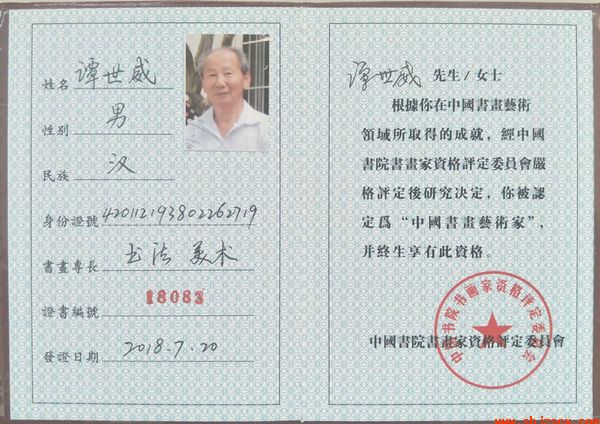 姓名 谭世威
性别 男
民族 汉
身份證號 420112193802262719
書畫專長 书法 美术
證書編號 18083
發證日期 2018.7.20
谭世威 先生/女士
根據你在中國書畫藝術
領域所取得的成就，經中國
書院書畫家資格評定委員會嚴
格評定後研究決定，你被認
定爲“中國書畫藝術家”，
并終生享有此資格。
中國書院書畫家資格評定委員會
中国书院书画家资格评定委员会